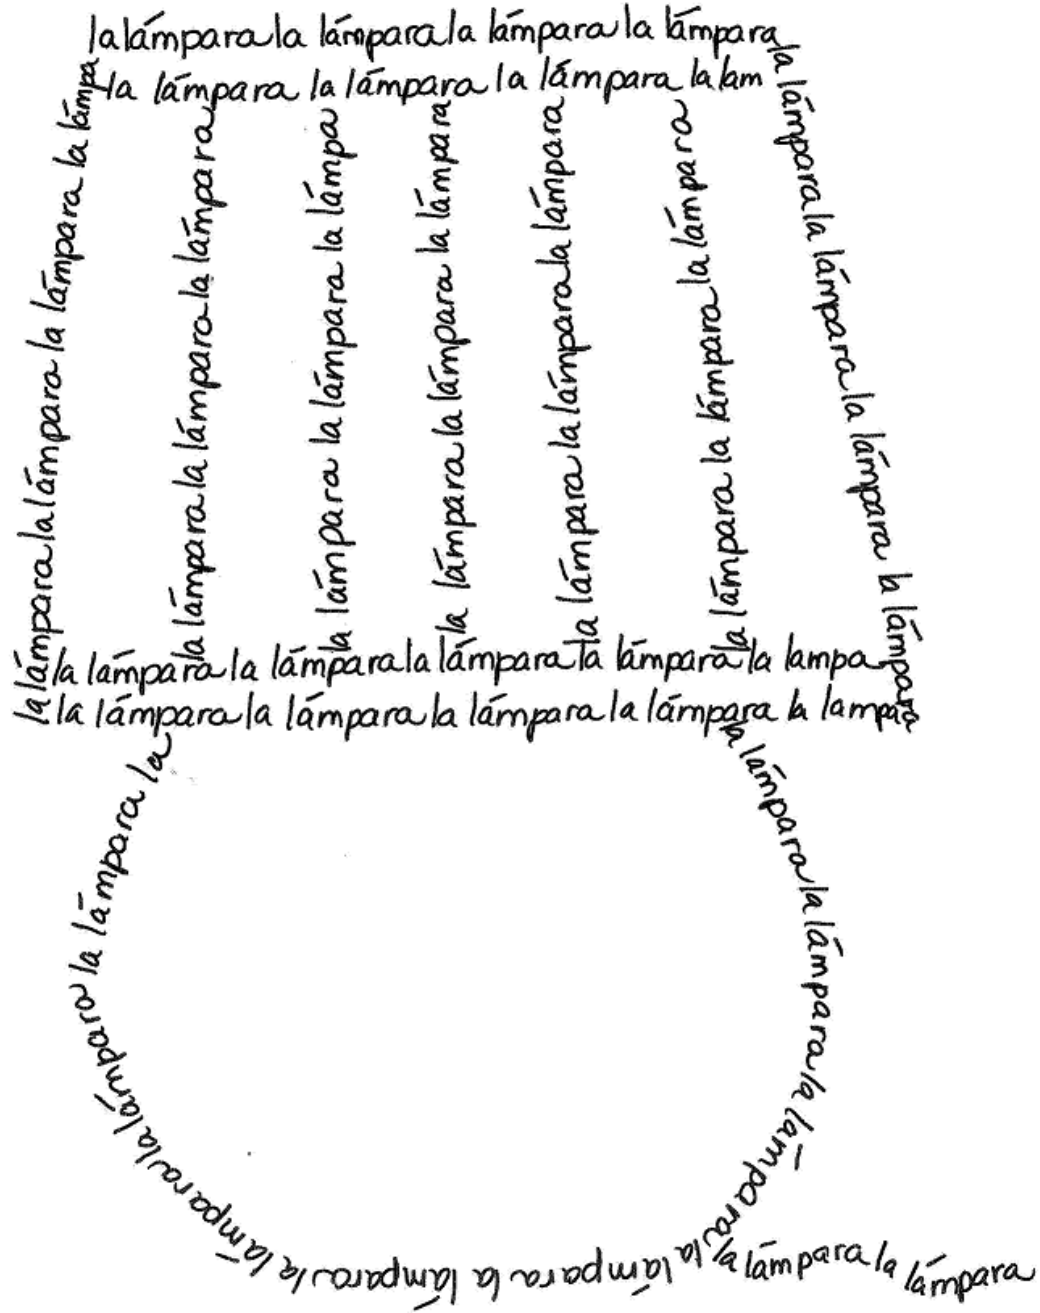 la lámpara la lámpara la lámpara la lámpara
la lámpara la lámpara la lámpara la lam
la lámpara la lámpara la lámpara la lámpa
la lámpara la lámpara la lámpara
la lámpara la lámpara la lámpa
la lámpara la lámpara la lámpara
la lámpara la lámpara la lámpara
la lámpara la lámpara la lámpara
la lámpara la lámpara la lámpara la lámpara
la lámpara la lámpara la lámpara la lámpara la lampa
la lámpara la lámpara la lámpara la lámpara la lampara
la lámpara la lámpara la lámpara la lámpara la lámpara la lámpara la lámpara la lámpara la
la lámpara la lámpara